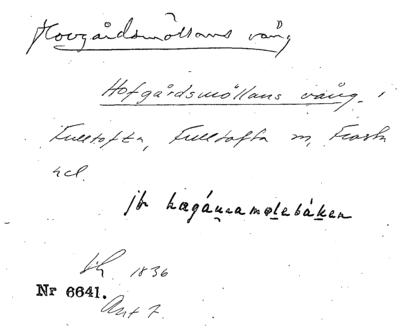 Hovgårdsmöllans vång
Hofgårdsmöllans vång, i
Fulltofta, Fulltofta sn, Frosta
hd.
jfr hagánnamølebáken
1836
Nr 6641. Akt 7.